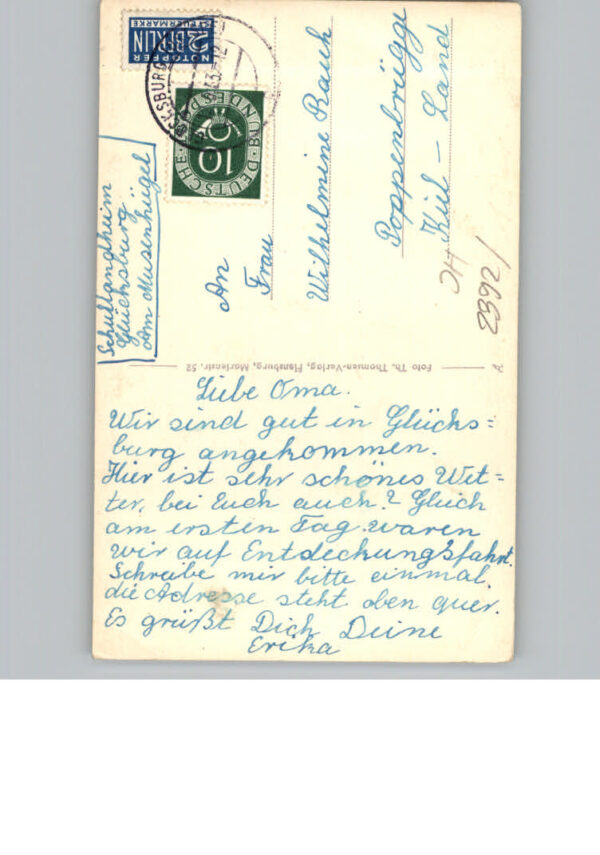 NOTOPFER
2 BERLIN
STEUERMARKE
DEUTSCHE BUNDESPOST
10
Schullandheim
Glücksburg
Am Musenhügel
An
Frau
Wilhelmine Rauh
Poppenbrügge
Kiel - Land
2392/
Foto Th. Thomsen-Verlag, Flensburg, Marienstr. 52
Liebe Oma.
Wir sind gut in Glücks=
burg angekommen.
Hier ist sehr schönes Wet=
ter, bei Euch auch? Gleich
am ersten Tag waren
wir auf Entdeckungsfahrt.
Schreibe mir bitte einmal,
die Adresse steht oben quer.
Es grüßt Dich Deine
Erika